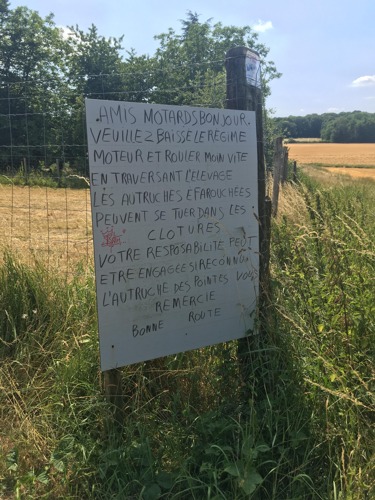 .AMIS MOTARDS BONJOUR.
VEUILLEZ BAISSE LE REGIME
MOTEUR ET ROULER MOIN VITE
EN TRAVERSANT L'ELEVAGE
LES AUTRUCHES EFAROUCHÉES
PEUVENT SE TUER DANS LES
CLOTURES
VOTRE RESPOSABILITE PEUT
ETRE ENGAGEE SI RECONNU
L'AUTRUCHE DES POINTES VOUS
REMERCIE
BONNE ROUTE